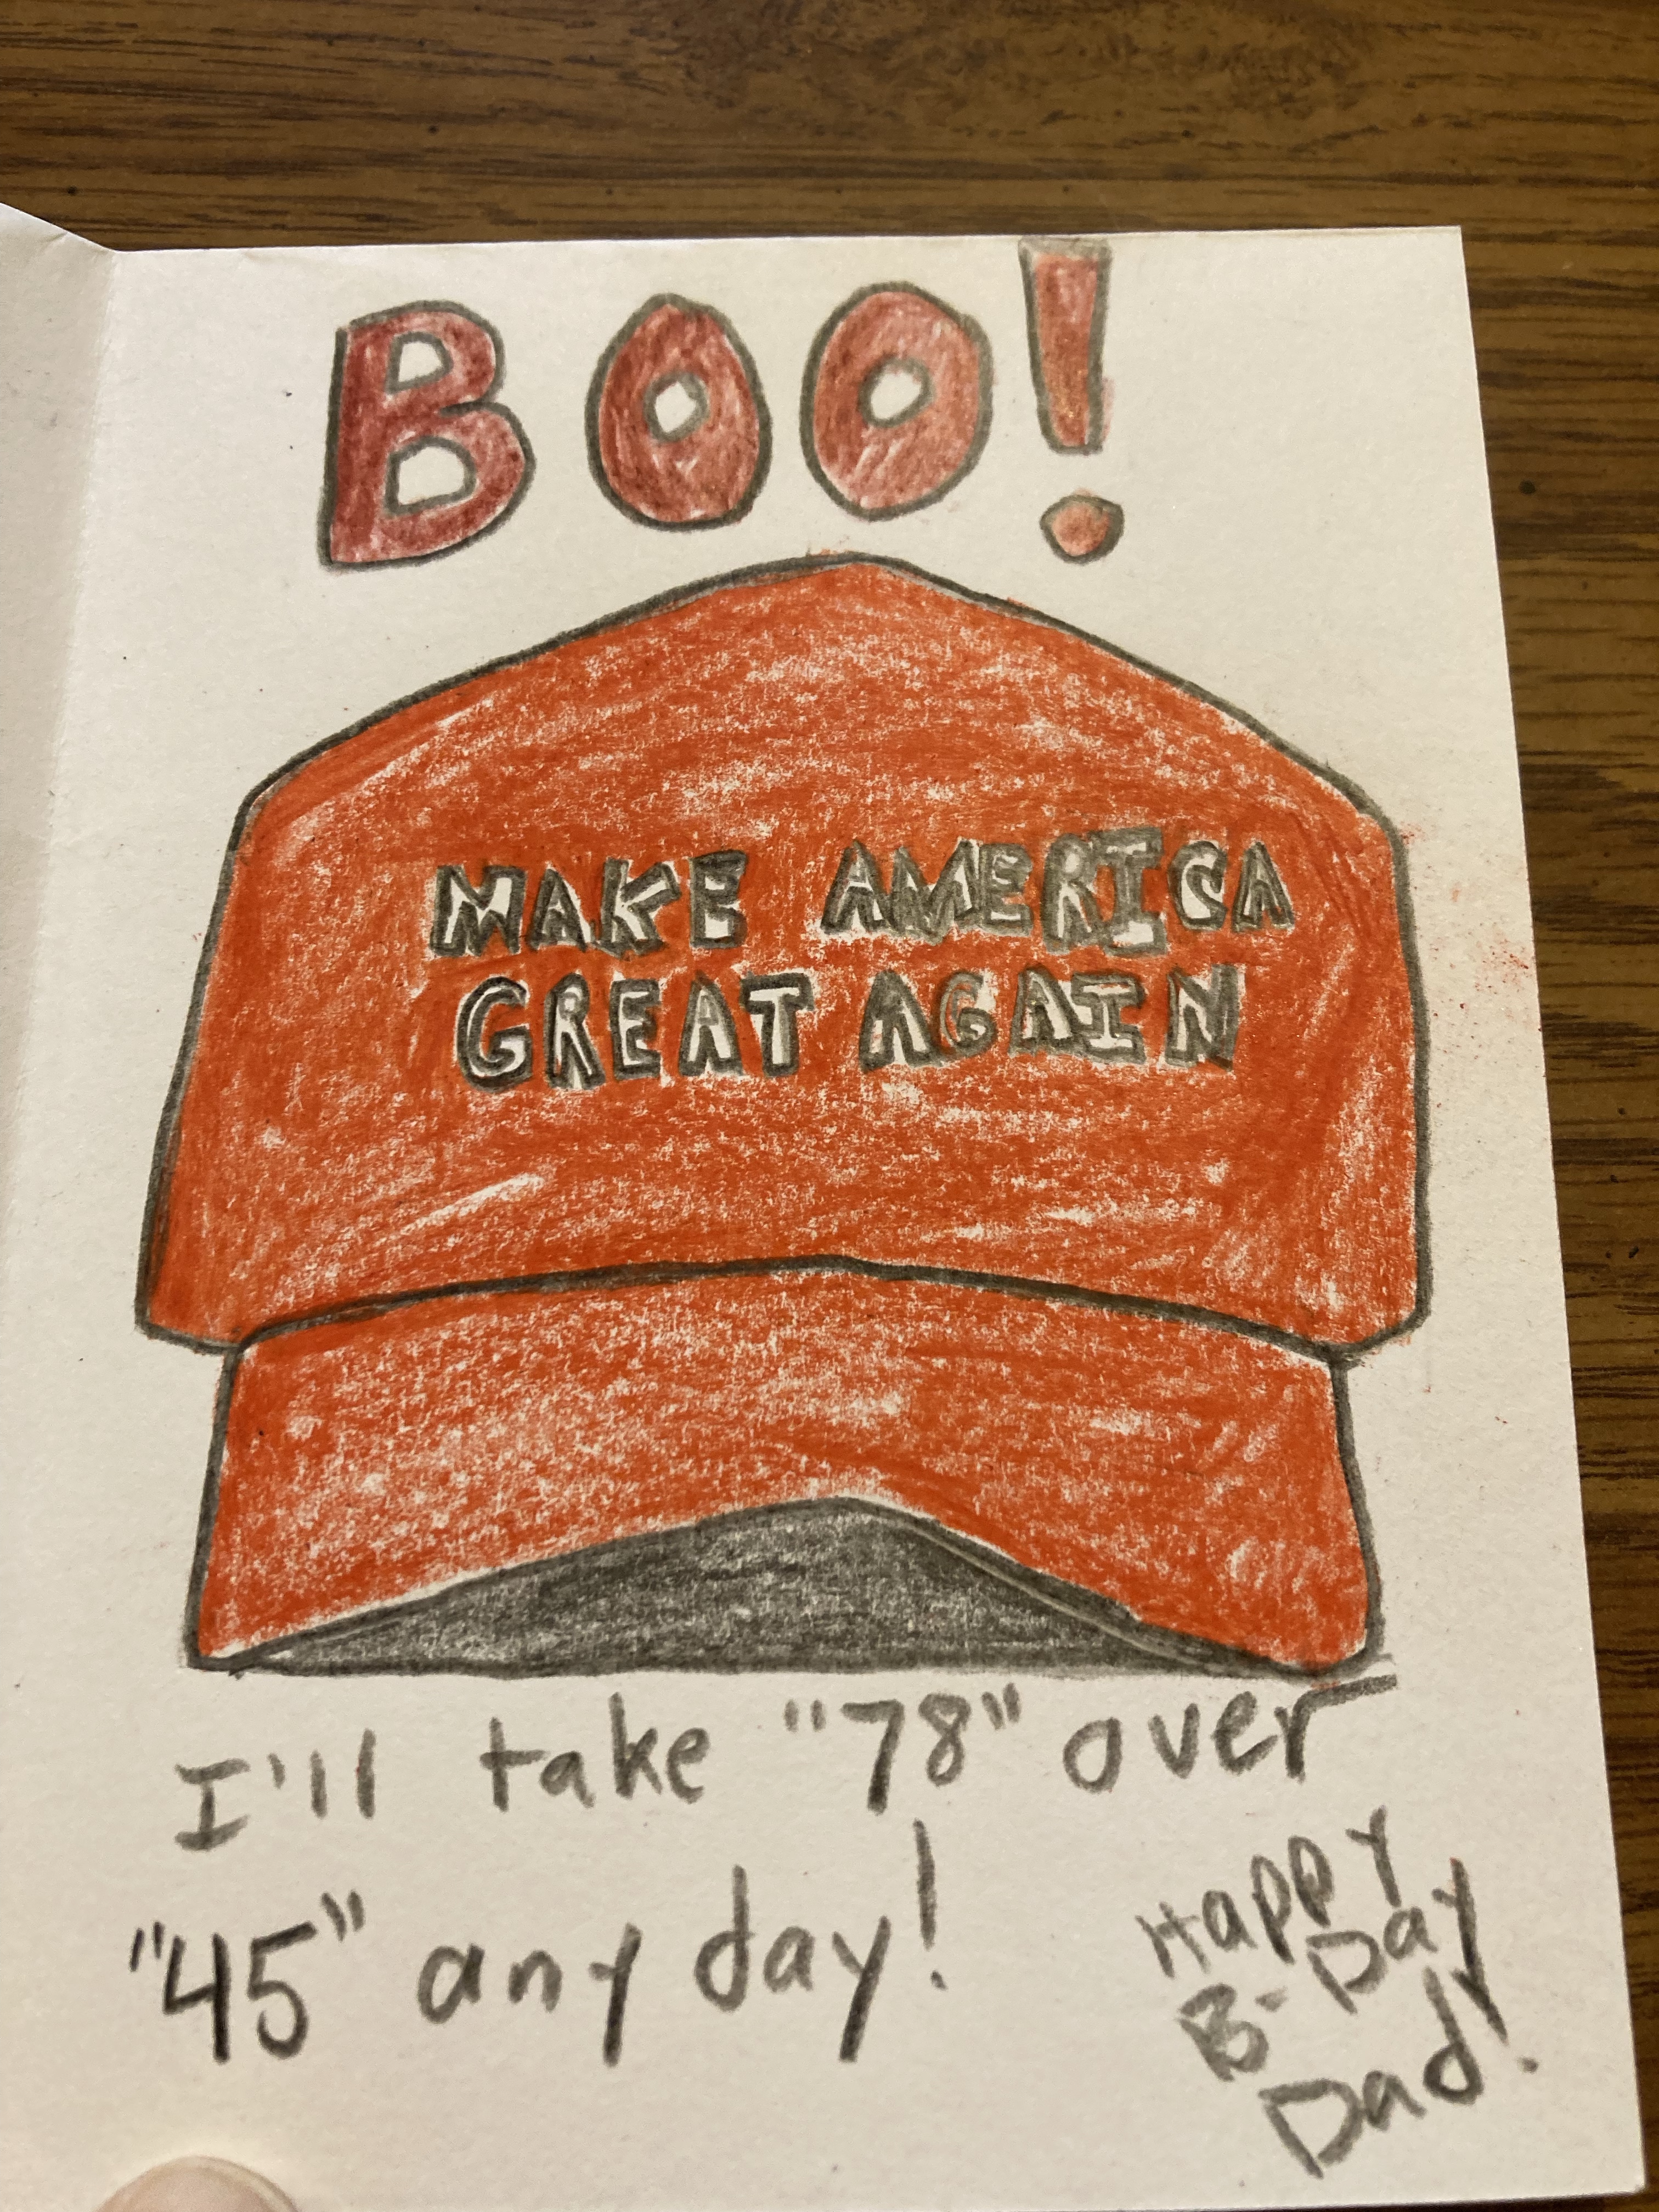 BOO!
MAKE AMERICA
GREAT AGAIN
I'll take "78" over
"45" any day!
Happy
B-Day
Dad!